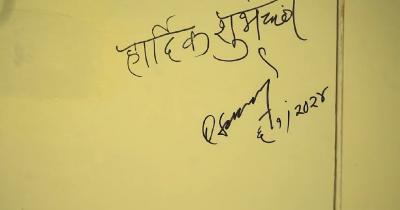 हार्दिक शुभेच्छा
६/१/२०२४